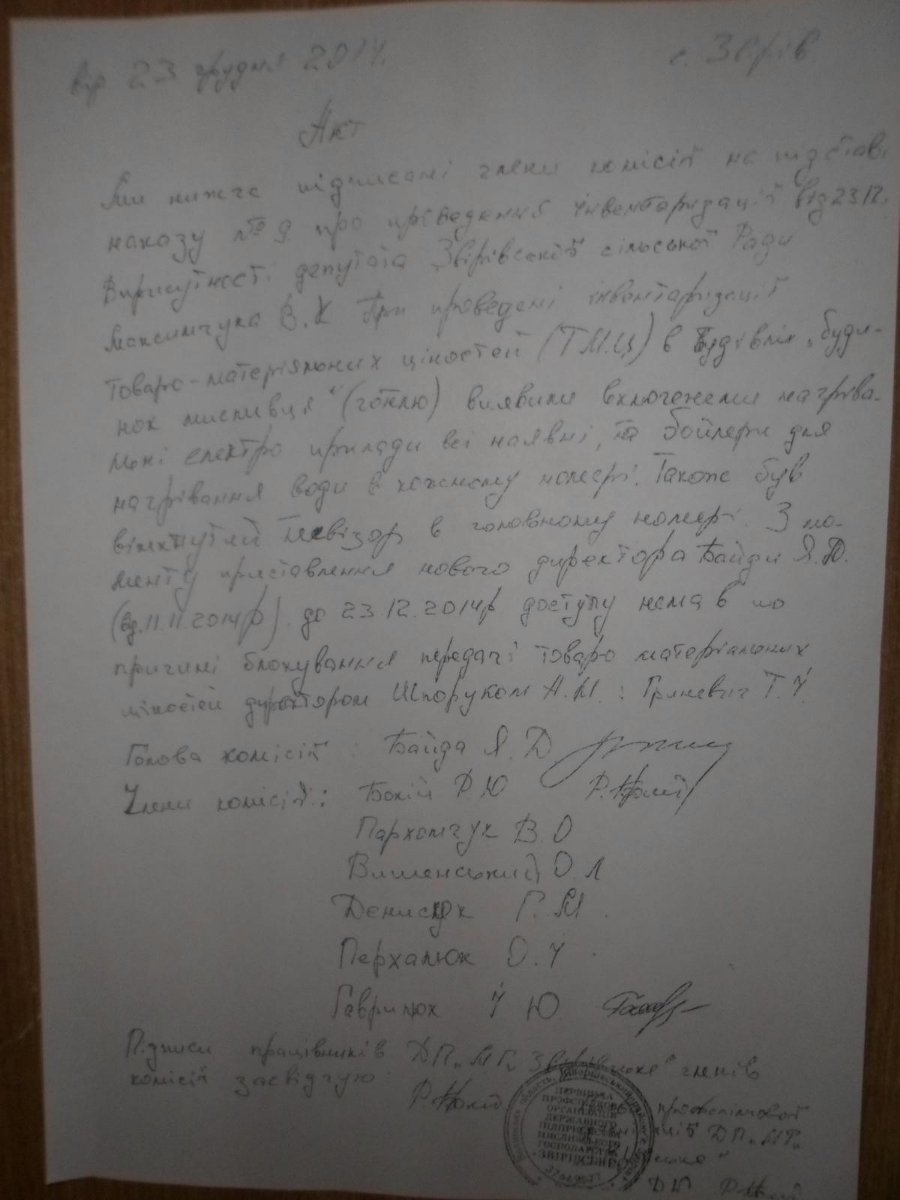 від 23 грудня 2014. с. Звірів
Акт
Ми нижче підписані члени комісії на підставі
наказу №9 про проведення інвентаризації від 23.12.
В присутності депутата Звірівської сільської Ради
Максимчука В.Х При проведені інвентаризації
товаро-матеріяльних ціностей (ТМЦ) в будівлі „буди-
нок мисливця" (готлю) виявили включеними нагріва-
льні електро прилади всі наявні, та бойлери для
нагрівання води в кожному номері. Також був
ввімкнутий телевізор в головному номері З мо-
менту приставлення нового директора Байди Я.Ю.
(від.11.11.2014р). до 23.12.2014р доступу нема в по
причині блокування передачі товаро матеріальних
ціностей директором Шпоруком А.М.: Гриневич Т.Ч
Голова комісії: Байда Я.Ю
Члени комісії: Бокій Р Ю
Пархомчук В.О
Вишенський О.Л
Денисюк Г.М.
Перхалюк О.Ч.
Гаврилюк Ч Ю.
Підписи працівників ДП„МГ„Звірівське" членів
комісії засвідчую
профспілкової
ДП„МГ„
ПЕРВИННА
ПРОФСПІЛКОВА
ОРГАНІЗАЦІЯ
ДЕРЖАВНОГО
ПІДПРИЄМСТВА
МИСЛИВСЬКОГО
ГОСПОДАРСТВА
«ЗВІРІВСЬКЕ»